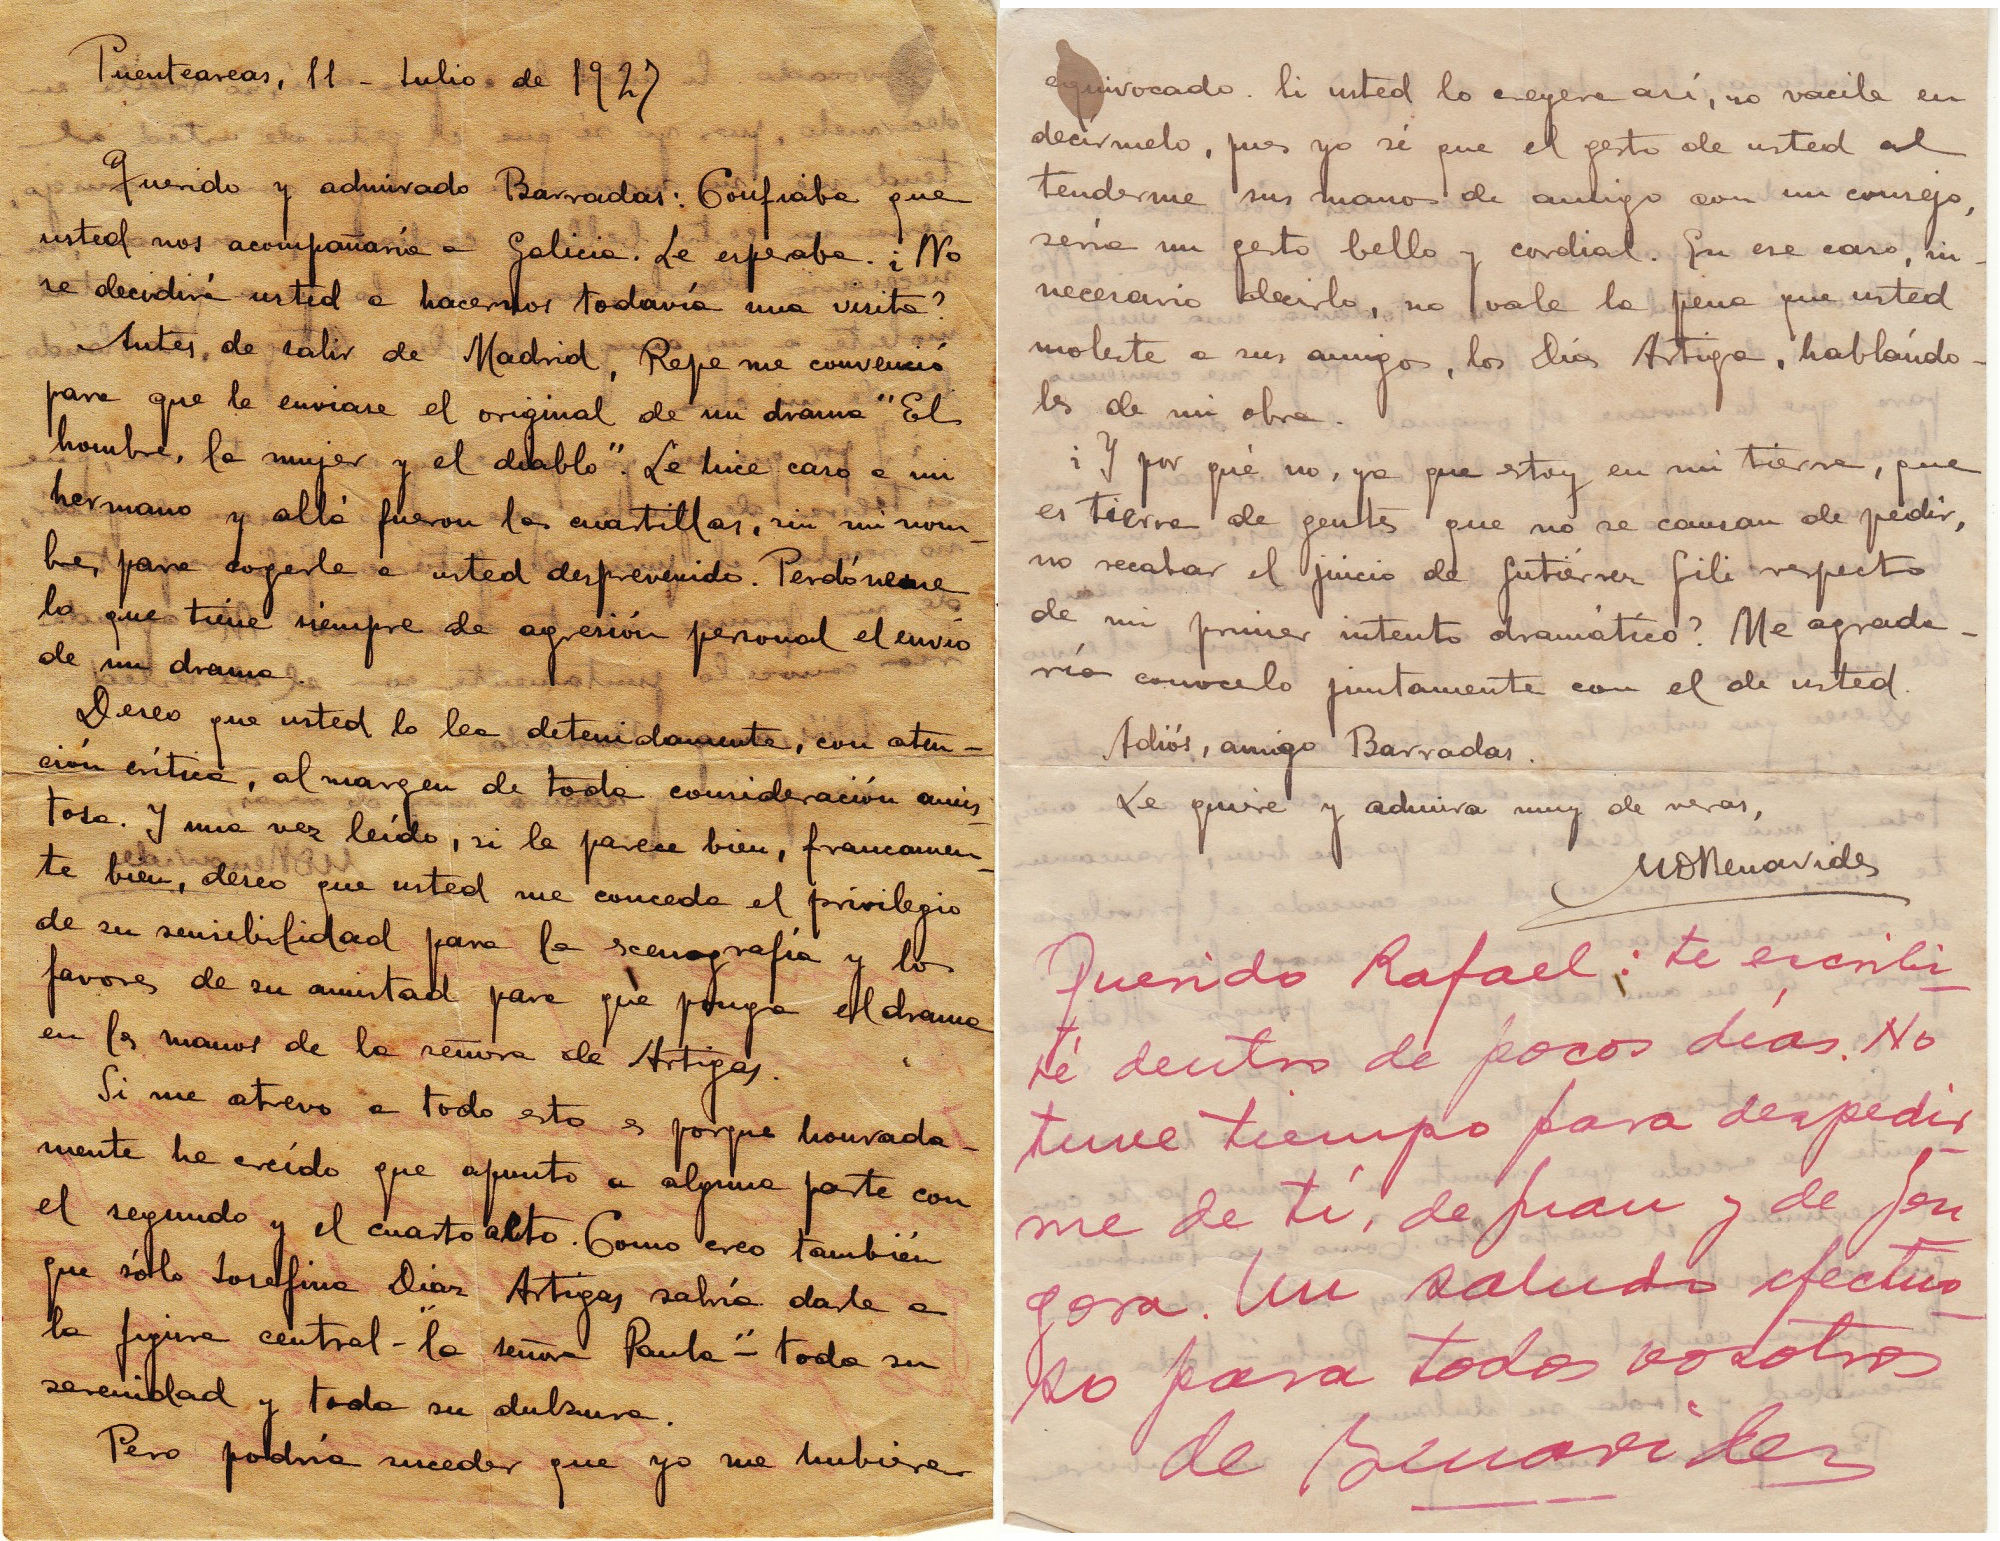 Puenteareas, 11 - Julio de 1927
Querido y admirado Barradas: Confiaba que
usted nos acompañaría a Galicia. Le esperaba. ¿No
se decidirá usted a hacernos todavía una visita?
Antes, de salir de Madrid, Pepe me convenció
para que le enviase el original de un drama "El
hombre, la mujer y el diablo". Le hice caso a mi
hermano y allá fueron las cuartillas, sin mi nom-
bre, para cogerle a usted desprevenido. Perdóneme
lo que tiene siempre de agresión personal el envío
de un drama.
Deseo que usted lo lea detenidamente, con aten-
ción crítica, al margen de toda consideración amis-
tosa. Y una vez leído, si le parece bien, francamen-
te bien, deseo que usted me conceda el privilegio
de su sensibilidad para la scenografía y los
favores de su amistad para que ponga el drama
en las manos de la señora de Artigas.
Si me atrevo a todo esto es porque honrada-
mente he creído que apunto a alguna parte con
el segundo y el cuarto acto. Como creo también
que sólo Josefina Díaz Artigas sabría darle a
la figura central - "la señora Paula" - toda su
serenidad y toda su dulzura.
Pero podría suceder que yo me hubiera
equivocado. Si usted lo creyera así, no vacile en
decírmelo, pues yo sé que el gesto de usted al
tenderme sus manos de amigo con un consejo,
sería un gesto bello y cordial. En ese caso, in-
necesario decirlo, no vale la pena que usted
moleste a sus amigos, los Días Artiga, hablándo-
les de mi obra.
¿Y por qué no, ya que estoy en mi tierra, que
es tierra de gentes que no se cansan de pedir,
no recabar el juicio de Gutiérrez Gili respecto
de mi primer intento dramático? Me agrada-
ría conocerlo juntamente con el de usted.
Adiós, amigo Barradas.
Le quiere y admira muy de veras,
MDBenavides
Querido Rafael: te escribi-
ré dentro de pocos días. No
tuve tiempo para despedir-
me de tí, de Juan y de Gón
gora. Un saludo efectuo-
so para todos vosotros
de Benavides